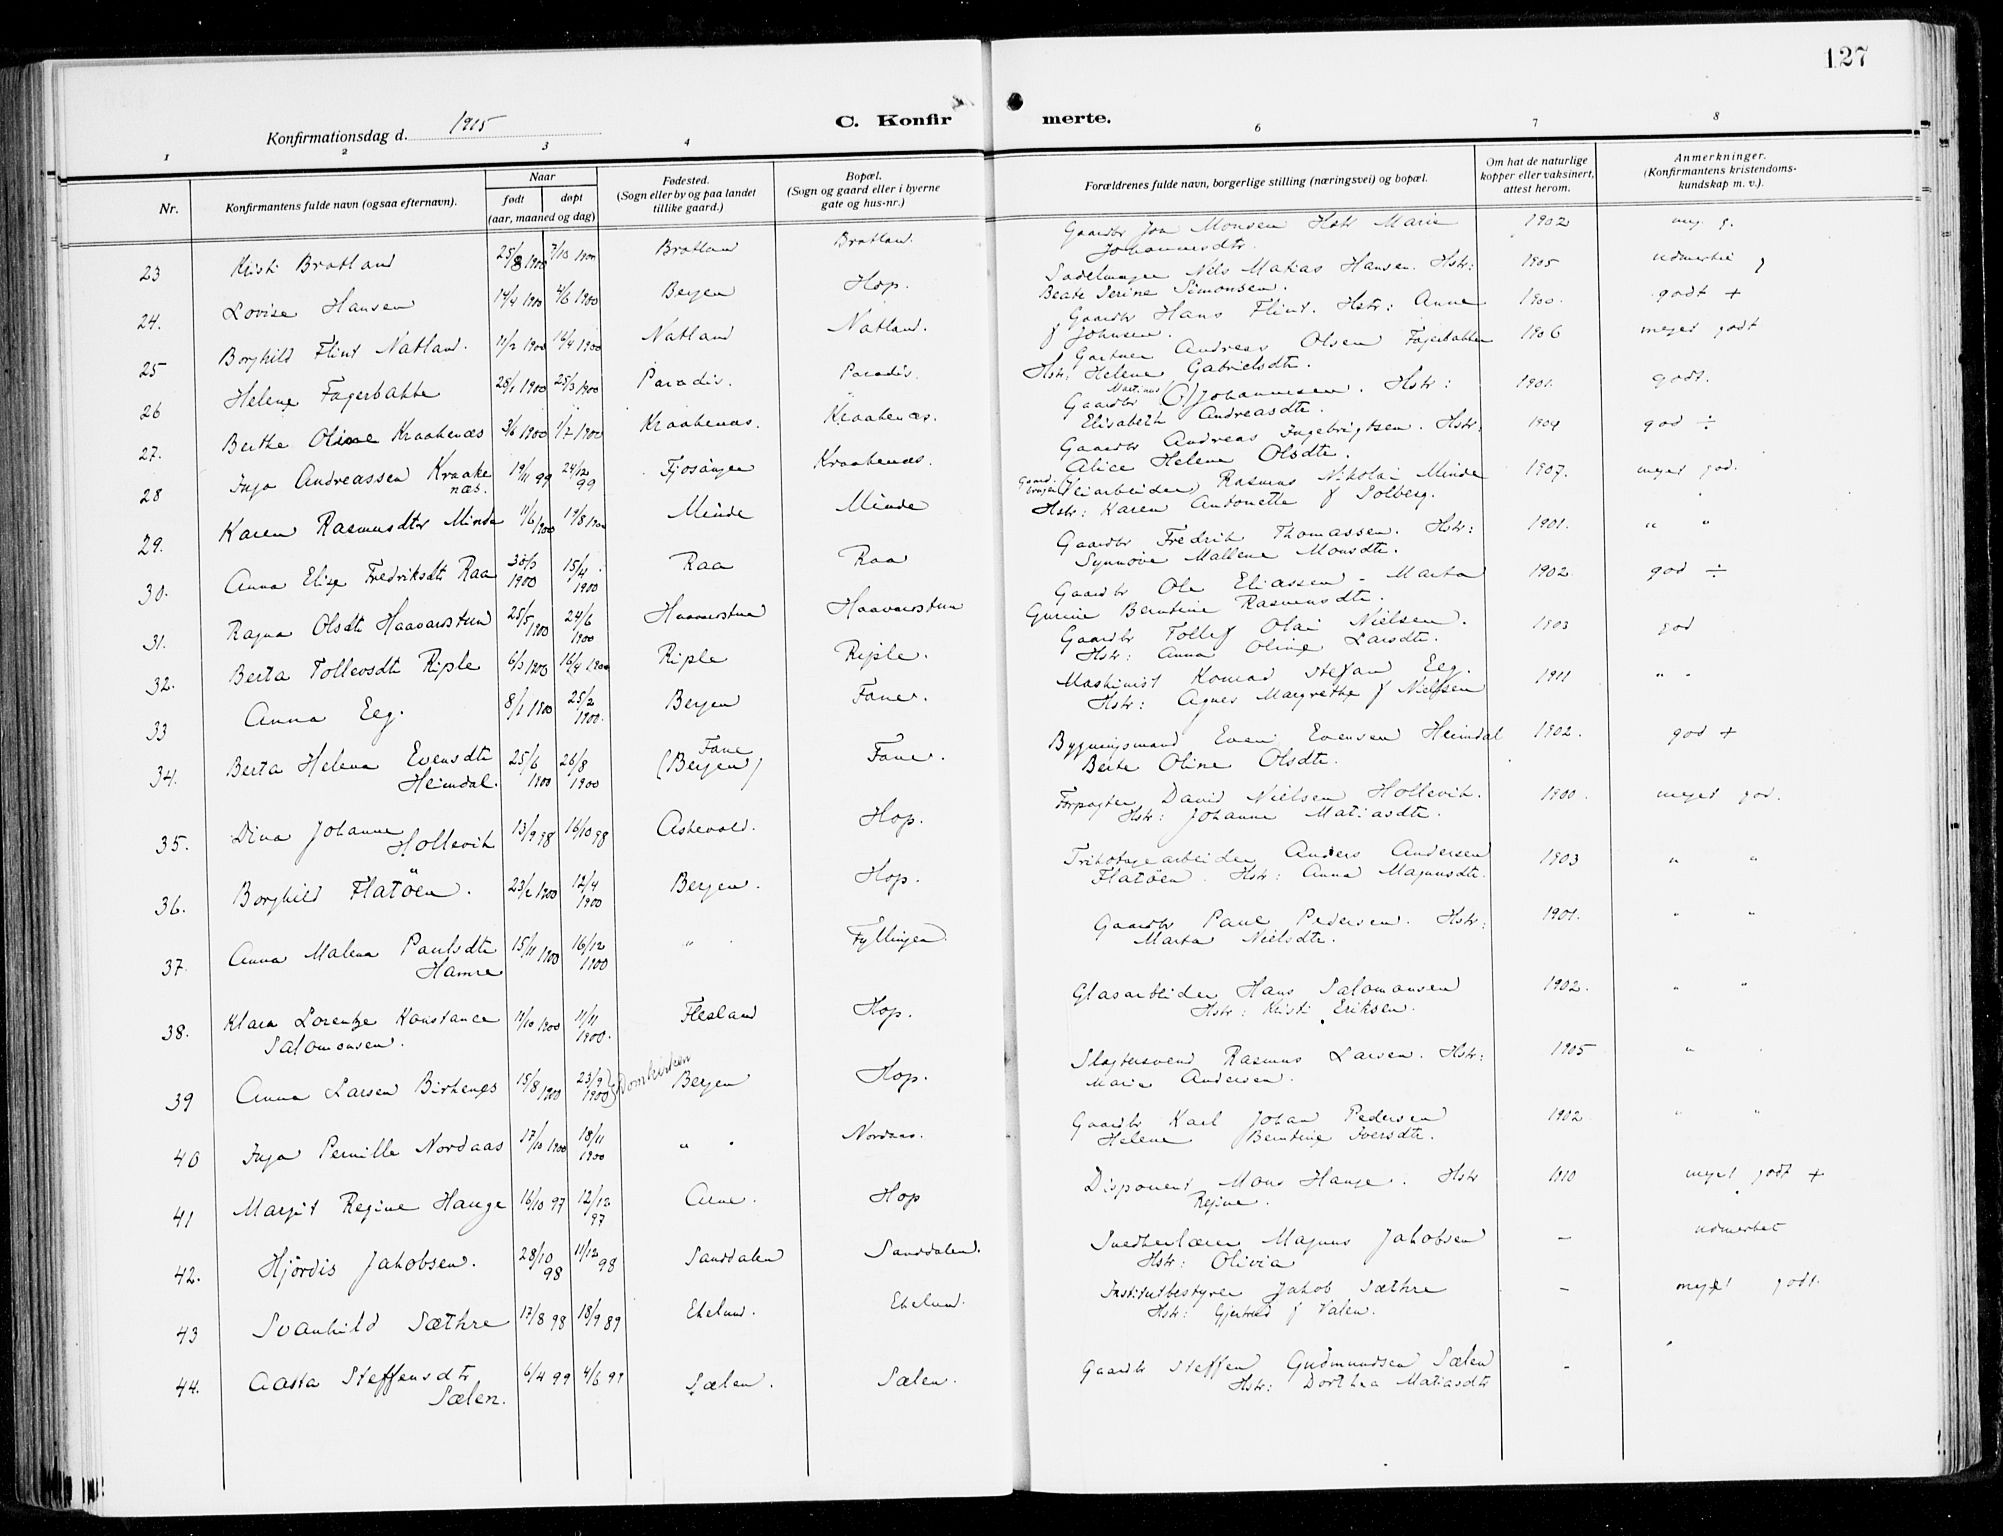 127
Konfirmationsdag d. 1915
C. Konfirmerte.
1 2 3 4 6 7 8
Nr.
Konfirmantens fulde navn (ogsaa efternavn).
Naar
født døpt
(aar, maaned og dag)
Fødested.
(Sogn eller by og paa landet
tillike gaard.)
Bopæl.
(Sogn og gaard eller i byerne
gate og hus-nr.)
Forældrenes fulde navn, borgerlige stilling (næringsvei) og bopæl.
Om hat de naturlige
kopper eller vaksinert,
attest herom.
Anmerkninger.
(Konfirmantens kristendoms-
kundskap m. v.).
23 Kristi Bratland 25/8 1900 7/10 1900 Bratland Bratland. Gaardbr Jon Monsen Hstr Marie 1902 meg. g.
Johannesdtr.
24. Lovise Hansen 14/4 1900 4/6 1900 Bergen Hop. Sadelmager Nils Matias Hansen. Hstr: 1905
Beate Serine Simonsen.
25 Borghild Flint Natland. 11/2 1900 16/4 1900 Natland Natland. Gaardbr Hans Flint. Hstr: Anne 1900. godt +
f Johnsen.
26 Helene Fagerbakke 28/1 1900 25/3 1900 Paradis. Paradis. Gartner Andreas Olsen Fagerbakken 1906 meget godt
Hstr: Helene Gabrielsdtr.
27. Berthe Oline Kraakenæs 3/6 1900 1/7 1900 Kraakenæs. Kraakenæs. Gaardbr Martinus Johannesen. Hstr: 1901. godt.
Elisabeth Andreasdtr.
28 Inga Andreassen Kraake 19/11 99 24/12 99 Fjøsanger Kraakenæs. Gaardbr Andreas Ingebrigtsen. Hstr: 1904 god ÷
næs.
Alice Helene Olsdtr.
29. Karen Rasmusdtr Minde 11/6 1900 19/8 1900 Minde Minde Gaardbruger Veiarbeider Rasmus Nikolai Minde 1907. meget god.
Hstr: Karen Antonette f Solberg.
30. Anna Elise Fredriksdtr Raa 30/3 1900 15/4 1900 Raa Raa Gaardbr Fredrik Thomassen. Hstr: 1901. " "
Synnøve Mallene Monsdtr.
31. Ragna Olsdtr Haavardstun 25/5 1900 24/6 1900 Haavardstun Haavardstun Gaardbr Ole Eliassen - Marta 1902 god ÷
Gurine Berntine Rasmusdtr.
32. Berta Tollevsdtr Riple 6/3 1900 16/4 1900 Riple Riple. Gaardbr Tollef Olai Nielsen. 1903 god
Hstr: Anna Oline Larsdtr.
33 Anna Eeg. 8/1 1900 25/2 1900. Bergen Fane. Maskinist Konrad Stefan Eeg. 1911 " "
Hstr: Agnes Margrethe f Nielsen
34. Berta Helena Evensdtr 25/6 1900 26/8 1900 Fane (Bergen) Fane. Bygningsmand Even Evensen Heimdal 1902. god +
Heimdal.
Berte Oline Olsdtr.
35. Dina Johanne 13/9 98 16/10 98 Askevold. Hop. Forpagter David Nielsen Hollevik. 1900. meget god.
Hollevik
Hstr: Johanne Matiasdtr.
36. Borghild Flatöen. 23/2 1900 12/4 1900 Bergen. Hop. Trikotagearbeider Anders Andersen 1903 " "
Flatöen. Hstr: Anna Magnusdtr.
37. Anna Malena Paulsdtr 15/11 1900 16/12 1900 " . Fyllingen. Gaardbr Paul Pedersen. Hstr: 1901. " "
Hamre
Marta Nielsdtr.
38. Klara Lorentze Konstance 11/10 1900 11/11 1900. Flesland Hop. Glasarbeider Hans Salomonsen 1902. " "
Salomonsen.
Hstr: Kristi Eriksen.
39 Anna Larsen Birkenes 15/8 1900 23/9 1900 Domkirken Bergen Hop. Slagtersvend Rasmus Larsen. Hstr: 1905 "
Marie Andersen.
40 Inga Pernille Nordaas 17/10 1900 18/11 1900 " . Nordaas. Gaardbr Karl Johan Pedersen 1902 " "
Helene Berntine Iversdtr.
41 Margit Regine Hauge 16/10 97 12/12 97 Arne. Hop Disponent Mons Hauge. Hstr 1910 meget godt +
Regine.
42. Hjördis Jakobsen. 28/10 98 11/12 98 Sanddalen Sanddalen. Snedkerlærer Magnus Jakobsen - udmerket
Hstr: Olivia
43 Svanhild Sæthre 17/8 98 18/9 89 Ekelund. Ekelund. Institutbestyrer Jakob Sæthre - meget godt.
Hstr: Gjertrud f Valen.
44. Aasta Steffensdtr 6/4 99 4/6 99 Sælen. Sælen. Gaardbr Steffen Gudmundsen Sælen -
Sælen.
Hstr: Dorthea Matiasdtr